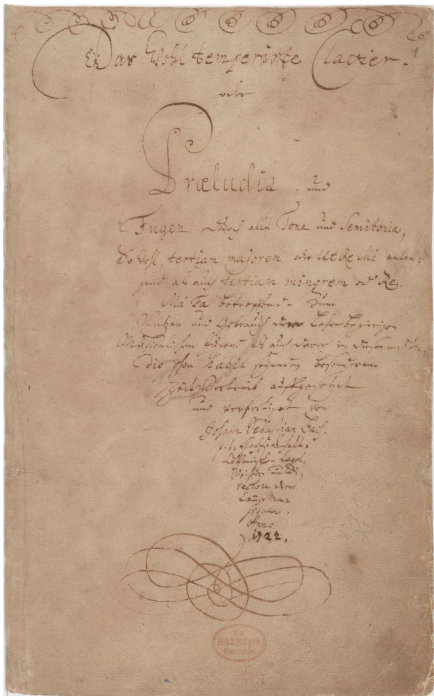 Das Wohl temperirte Clavier.
oder
Præludia, und
Fugen durch alle Tone und Semitonia,
So wohl tertiam majorem oder Ut Re Mi anlan-
gend, als auch tertiam minorem oder Re
Mi Fa betreffend. Zum
Nutzen und Gebrauch der Lehrbegierigen
Musicalischen Jugend, als auch derer in diesem
schon habil seyenden besonderem
Zeitvertreib auffgesetzet
und verfertiget von
Johann Sebastian Bach.
p. t. HochFürstlich
Cöthenischen Capel-
Meistern und Di-
rectore derer
Cammer Mu-
siquen.
Anno
1722.